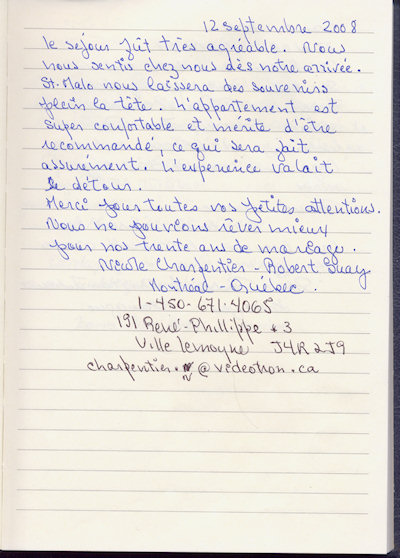 12 septembre 2008
le séjour fût très agréable. Nous
nous sentis chez nous dès notre arrivée.
St. Malo nous laissera des souvenirs
plein la tête. L'appartement est
super confortable et mérite d'être
recommandé, ce qui sera fait
assurément. L'expérience valait
le détour.
Merci pour toutes vos petites attentions.
Nous ne pouvions rêver mieux
pour nos trente ans de mariage.
Nicole Charpentier - Robert Guay
Montréal - Québec.
1-450-671-4065
191 René-Phillippe #3
Ville Lemoyne J4R 2J9
charpentier. @videotron.ca